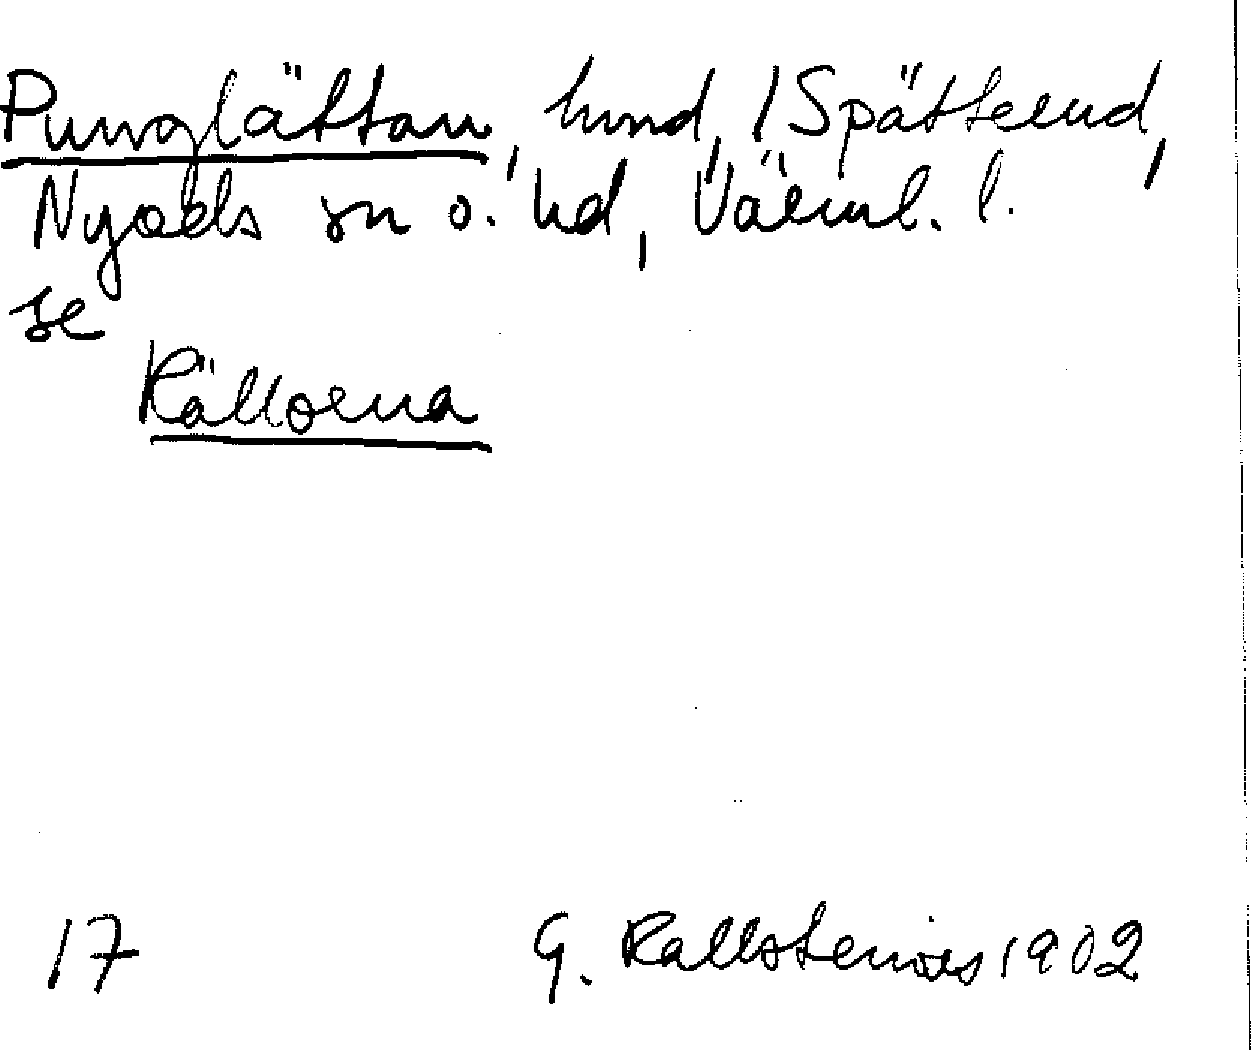 Punglättan, hmd, /Spätterud,
Nyeds sn o. hd, Värml. l.
se
Källorna
17 G. Kallstenius 1902